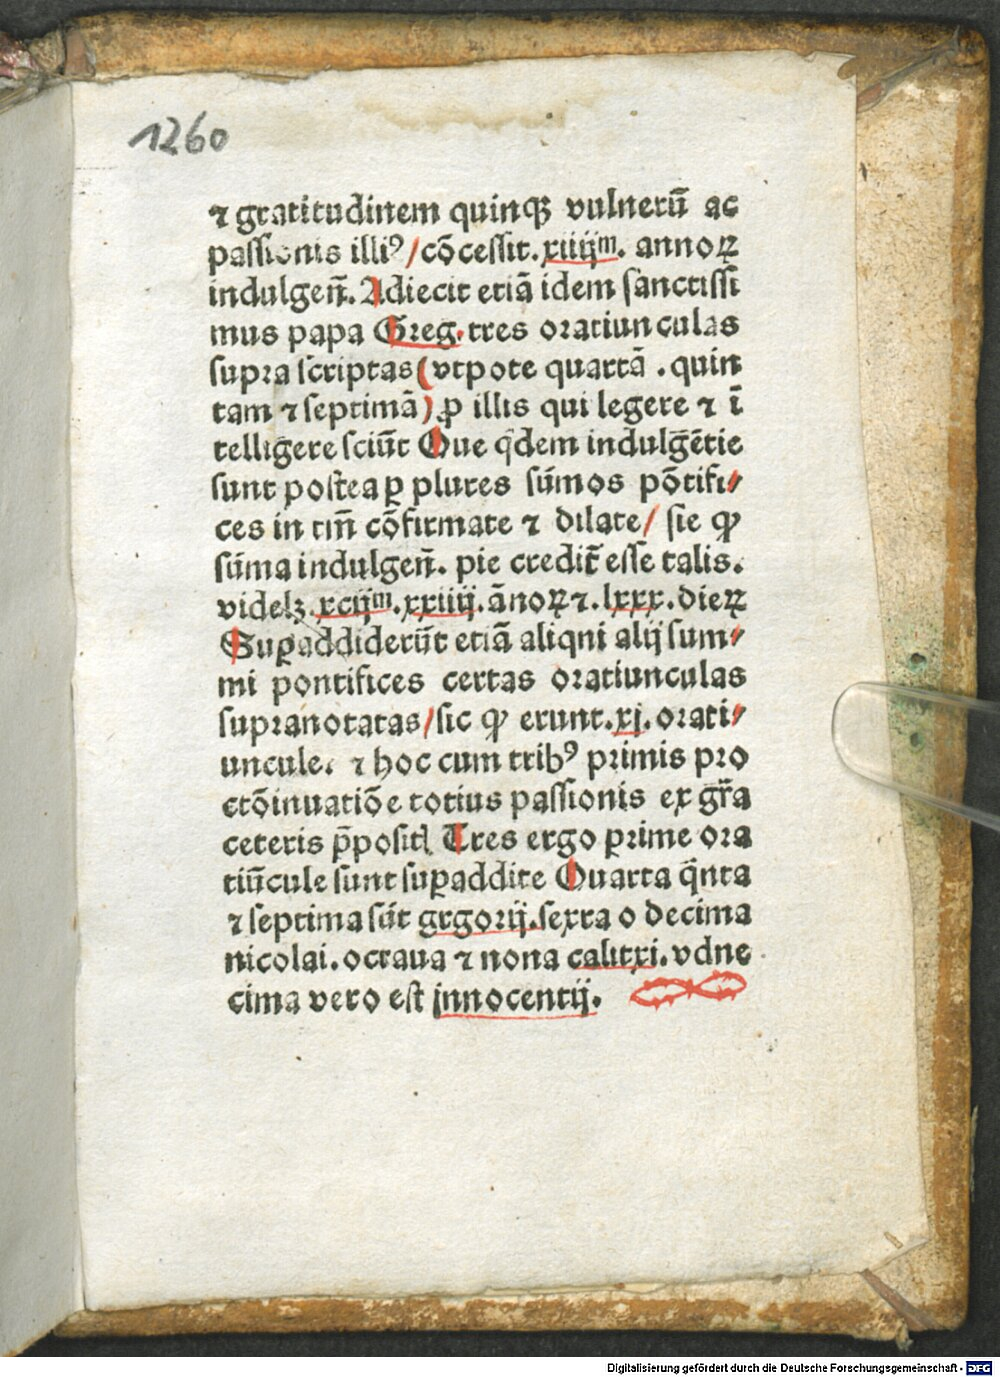 1260
⁊ gratitudinem quinqꝫ vulnerū ac
passionis illiꝰ/cōcessit.xiiijᵐ. annoꝝ
indulgen̄. Adiecit etiā idem sanctissi
mus papa Greg.tres oratiunculas
supra scriptas(vtpote quartā .quin
tam ⁊ septimā)ꝓ illis qui legere ⁊ ī
telligere sciūt Que q̄dem indulgētie
sunt postea ꝑ plures sūmos pōtifi⸗
ces in tm̄ cōfirmate ⁊ dilate/ sic ꝙ
sūma indulgen̄. pie credit̄ esse talis.
videlꝫ.xcijᵐ.xxiiij.ānoꝝ⁊.lxxx.dieꝝ
Suꝑaddiderūt etiā aliqni alij sum⸗
mi pontifices certas oratiunculas
supranotatas/sic ꝙ erunt.xj.orati⸗
uncule. ⁊ hoc cum tribꝰ primis pro
ctōinuatiōe totius passionis ex gr̄a
ceteris p̄posit Tres ergo prime ora
tiūcule sunt suꝑaddite Quarta q̄nta
⁊ septima sūt grgorij.sexta o decima
nicolai.octaua ⁊ nona calitxi.vdne
cima vero est jnnocentij.
Digitalisierung gefördert durch die Deutsche Forschungsgemeinschaft - DFG